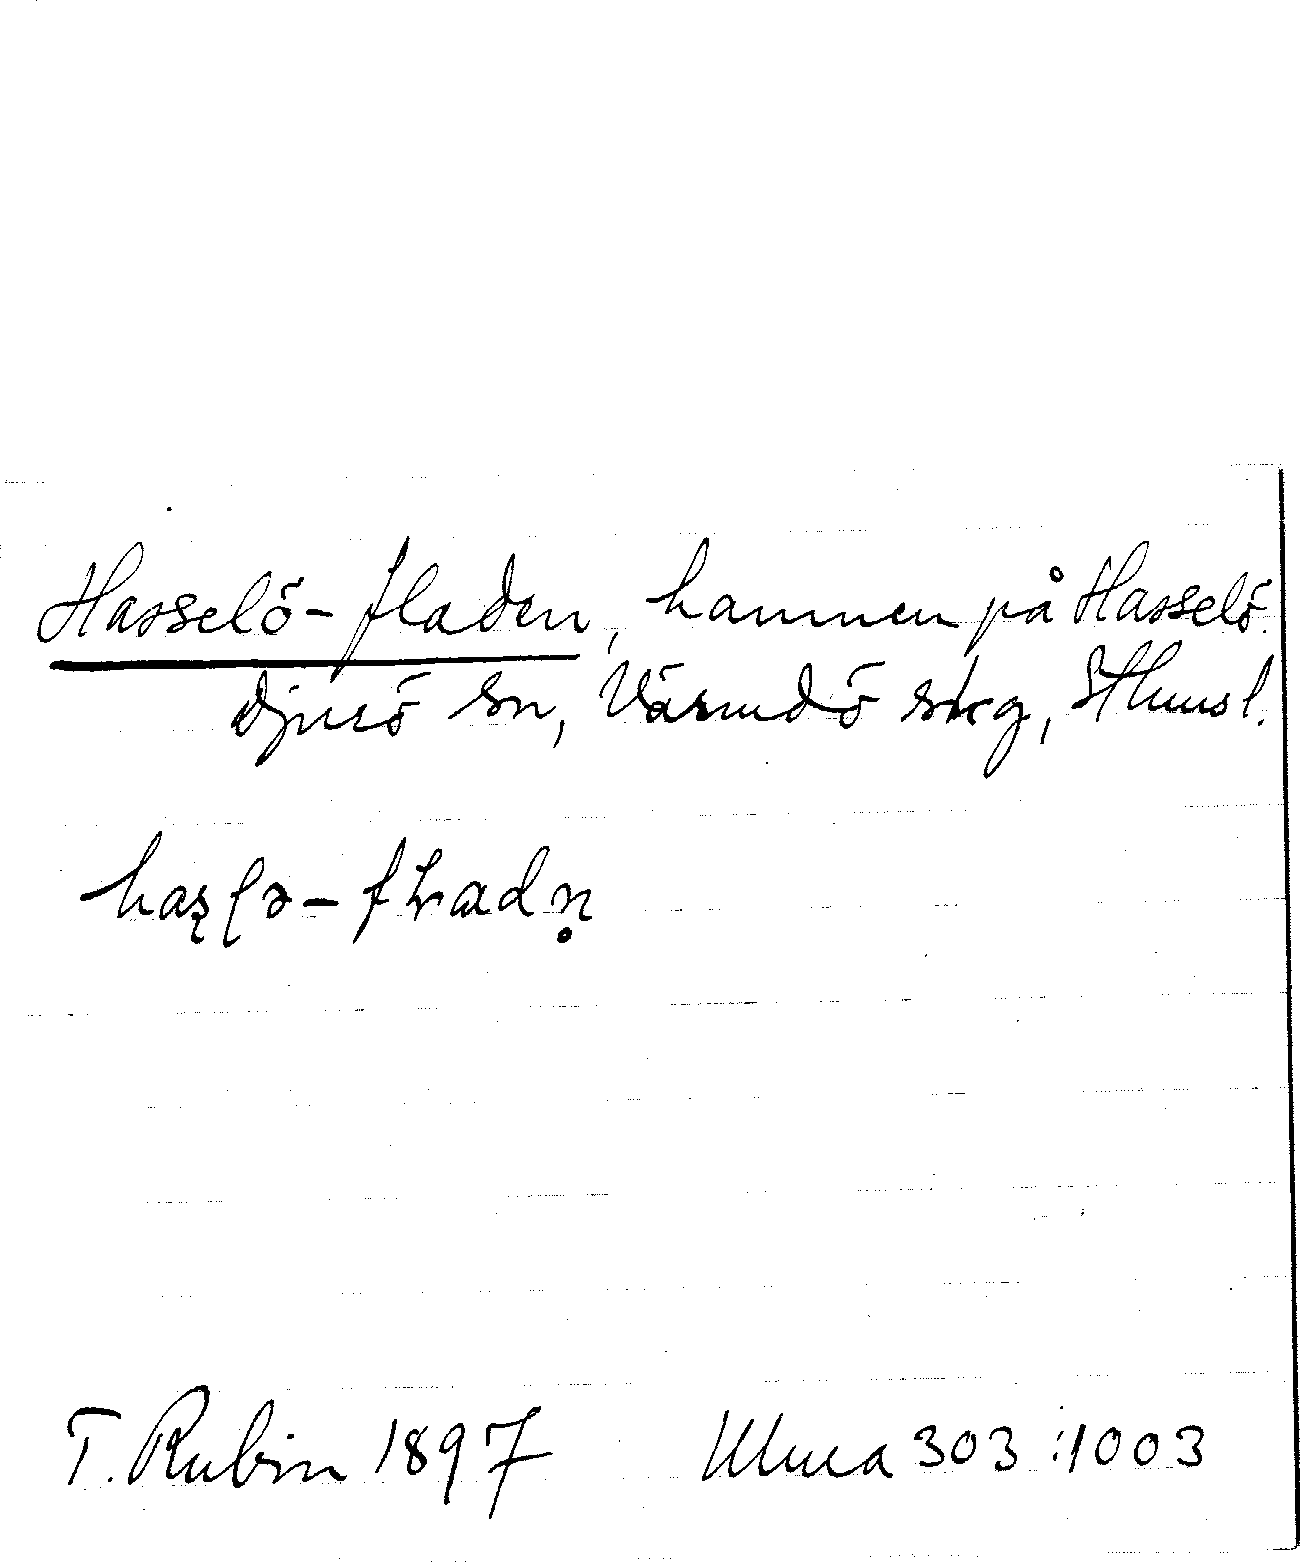 Hasselö-fladen, hamnen på Hasselö.
Djurö sn, Värmdö skg, Sthms l.
T. Rubin 1897 Ulma 303:1003